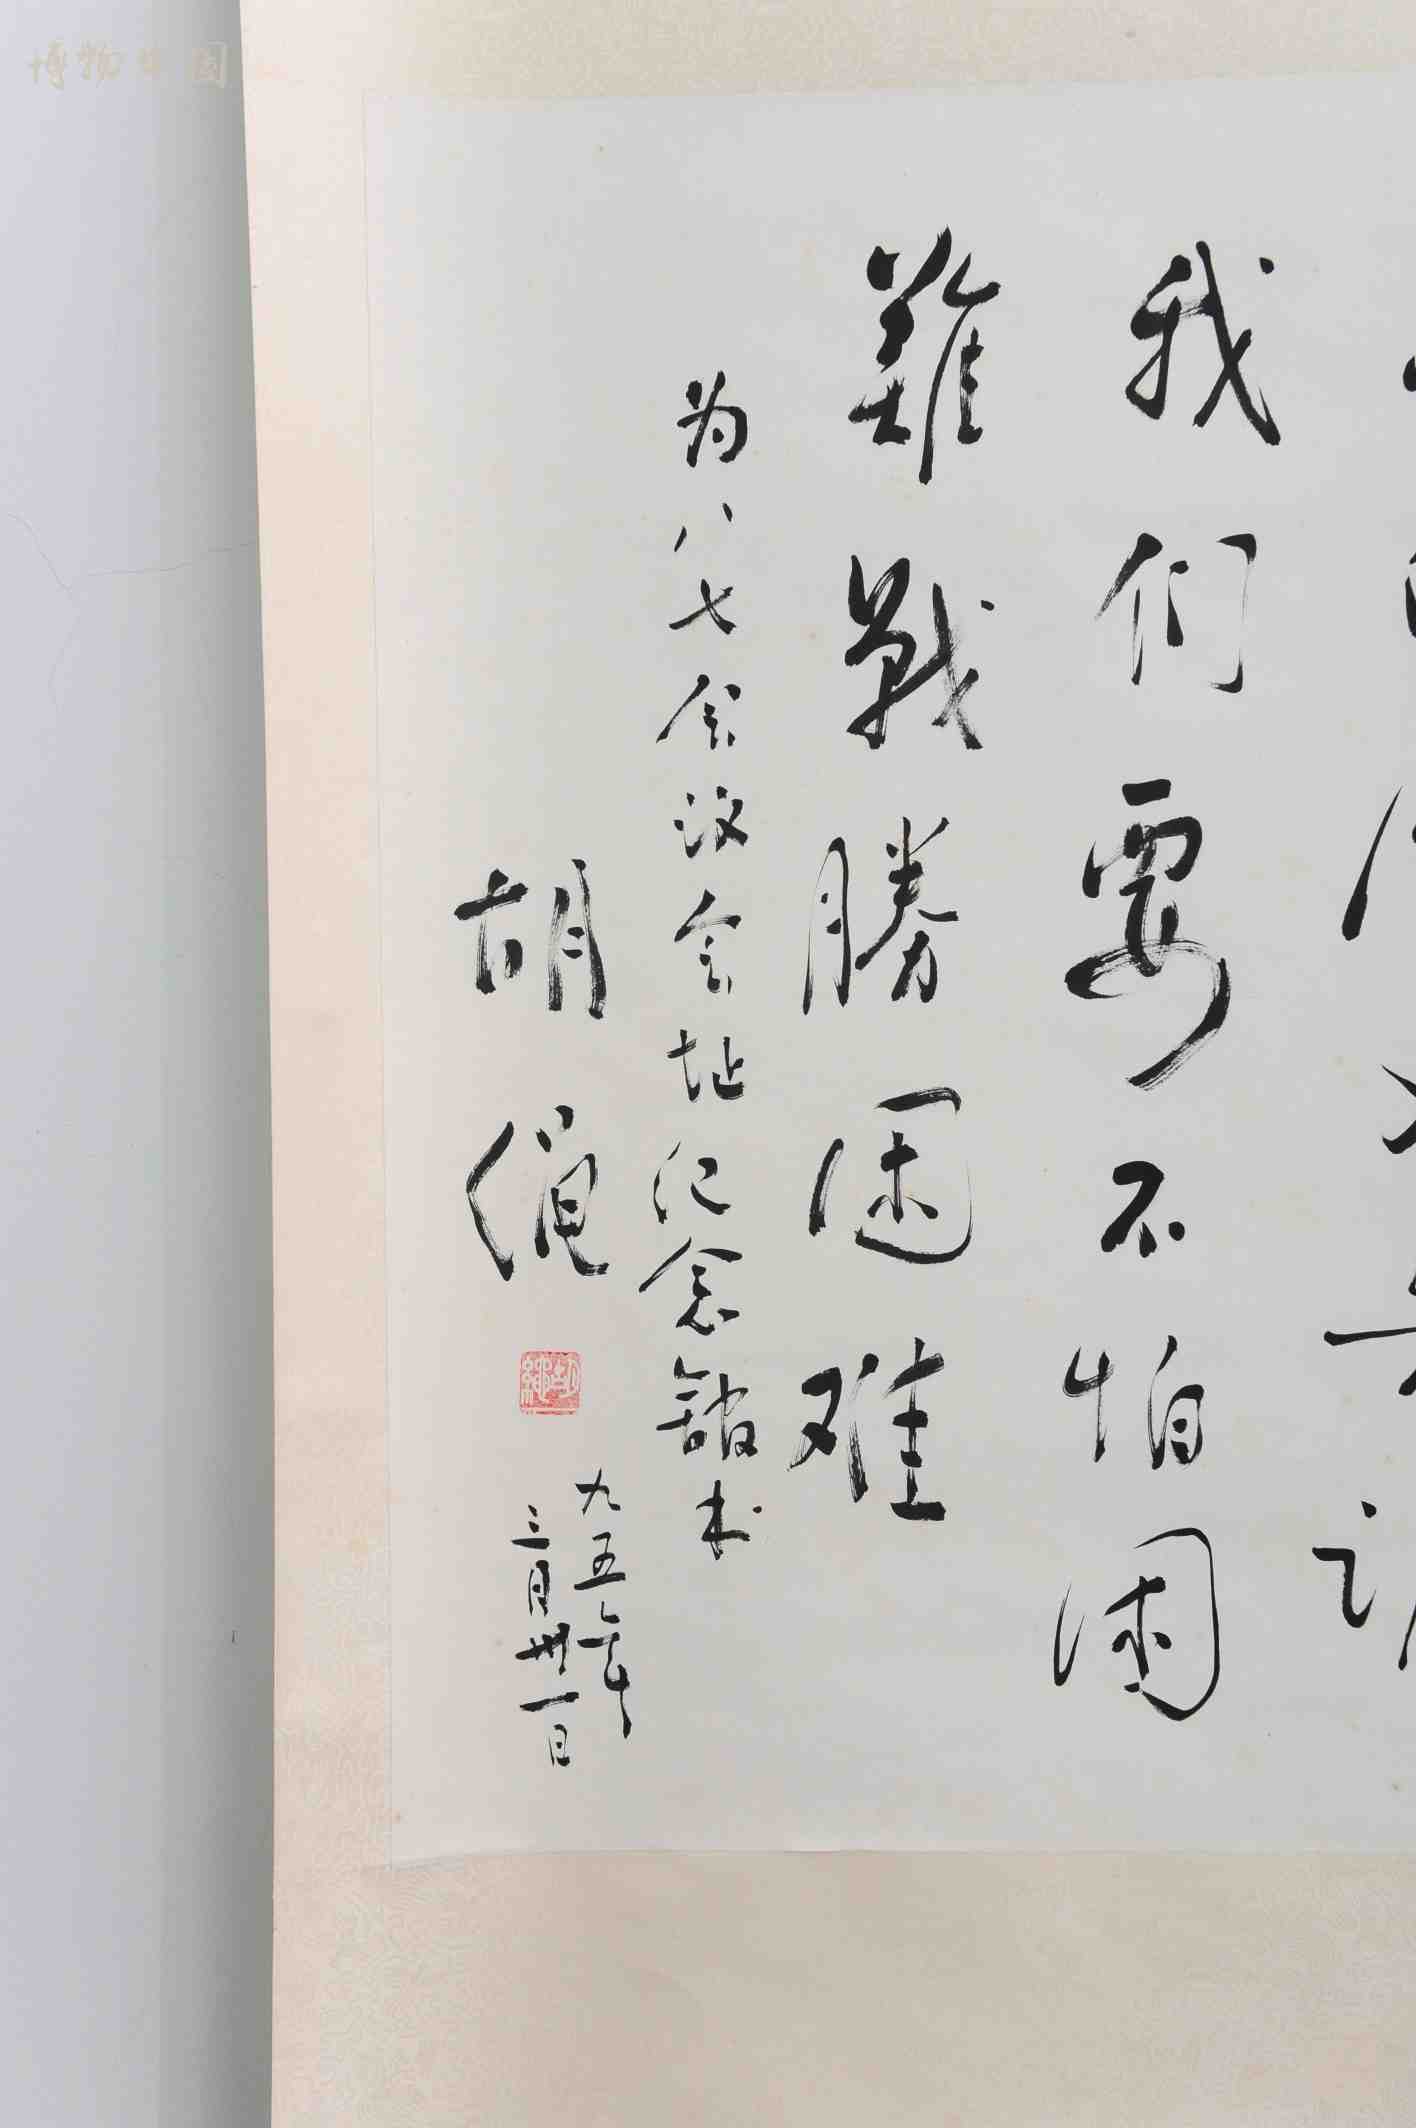 我们要不怕困
難戰勝困难
为八七会议会址纪念館书
胡绳
九五年
三月卅一日
胡繩
博物中国